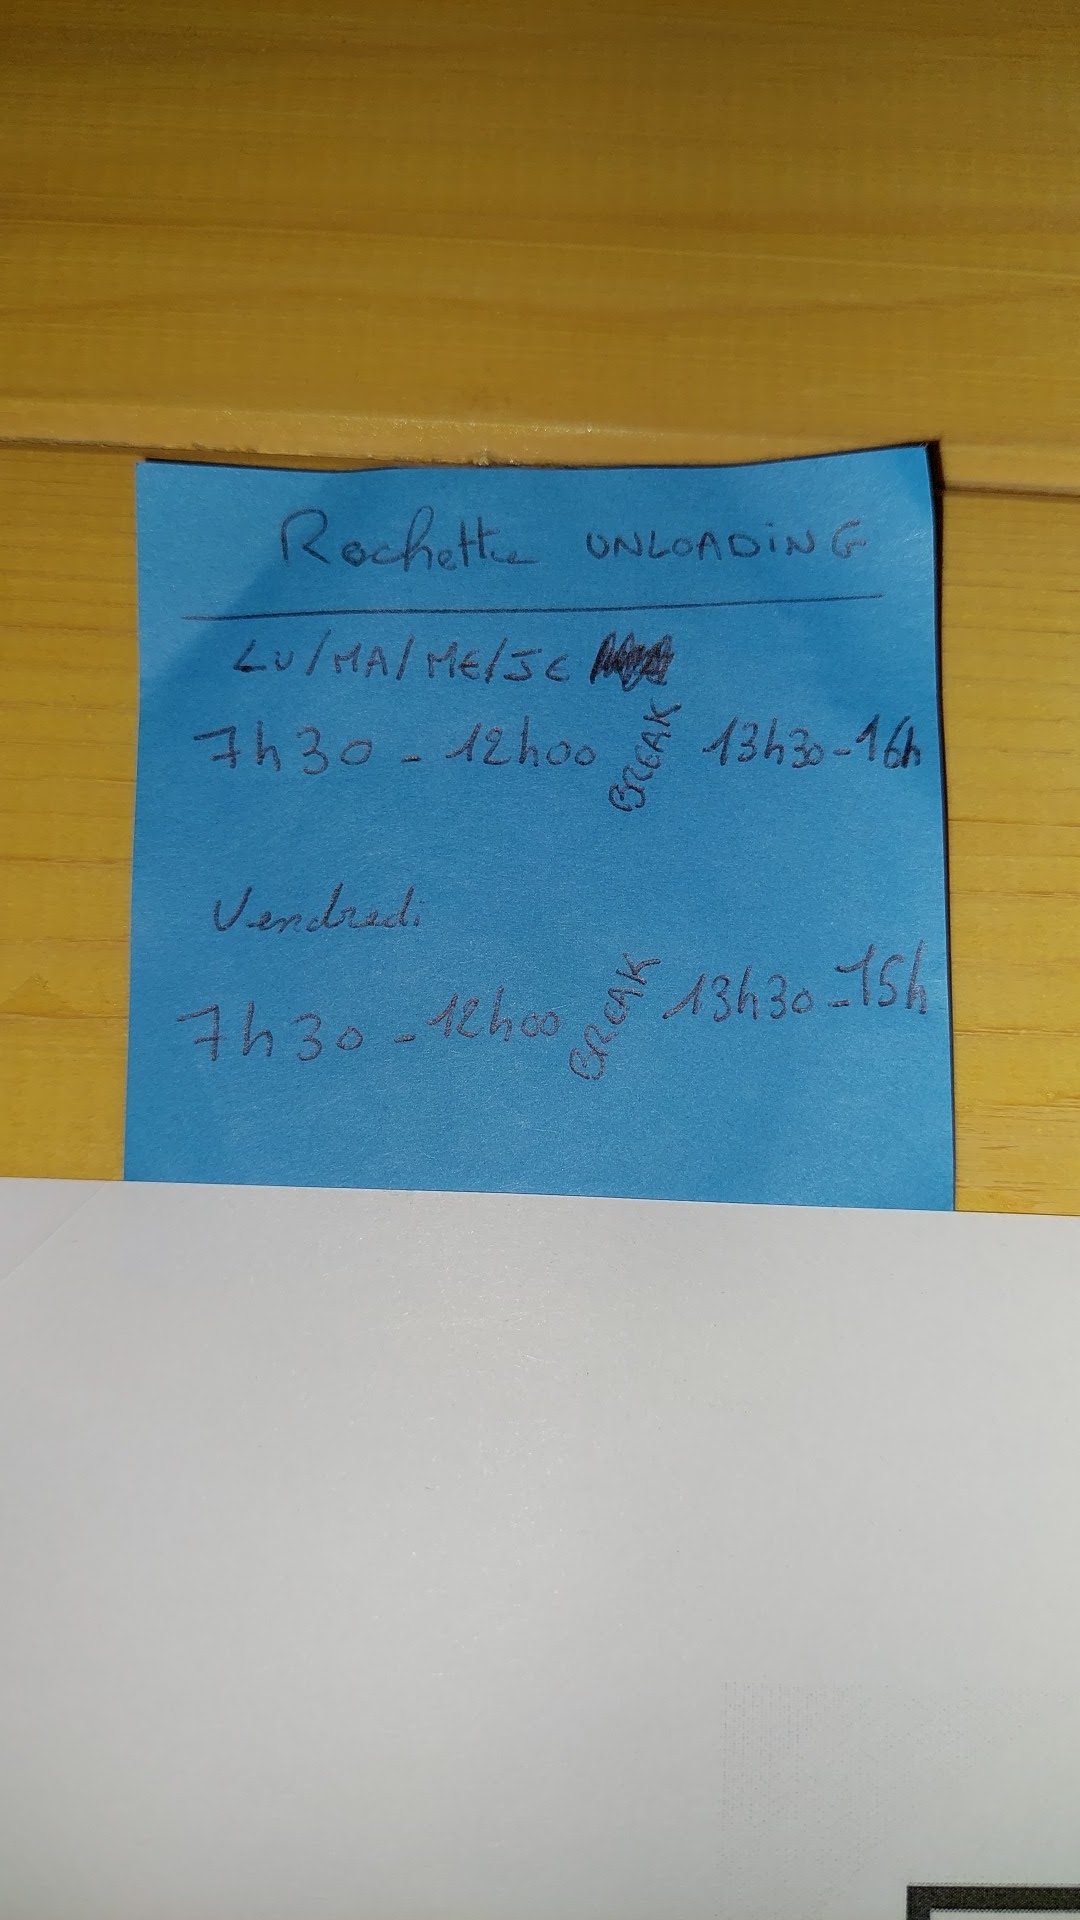 Rochette UNLOADING
LU/MA/ME/JE
7h30 - 12h00 BREAK 13h30-16h
Vendredi
7h30 - 12h00 BREAK 13h30-15h